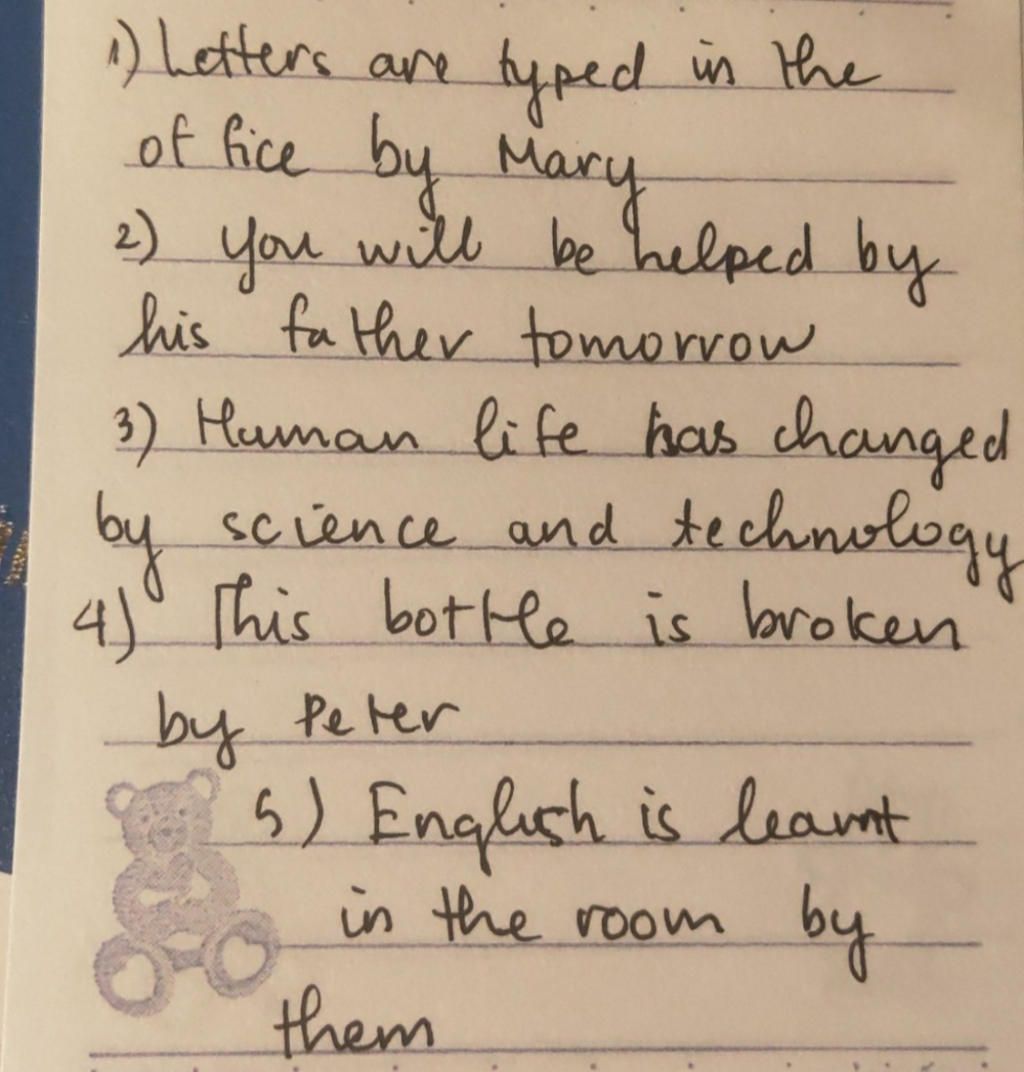 1) Letters are typed in the
office by Mary
2) you will be helped by
his father tomorrow
3) Human life has changed
by science and technology
4) This bottle is broken
by Peter
5) English is learnt
in the room by
them